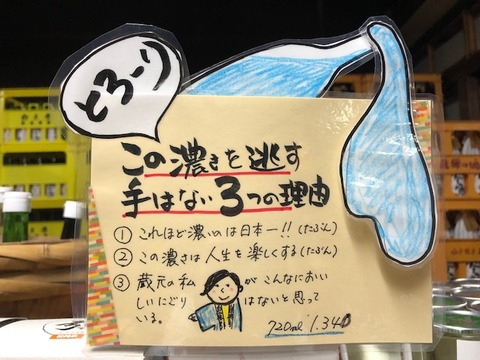 とろーり
この濃さを逃す
手はない3つの理由
① これほど濃いのは日本一!!(たぶん)
② この濃さは人生を楽しくする(たぶん)
③ 蔵元の私がこんなにおい
しいにごりはないと思って
いる。
720ml 1.340